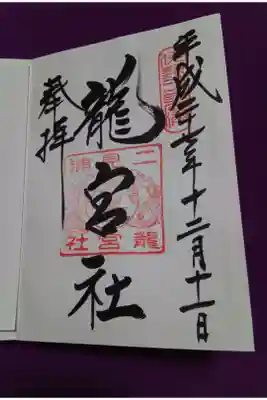 平成 年十二月十一日
龍宮社
奉拝
二見浦
龍宮社